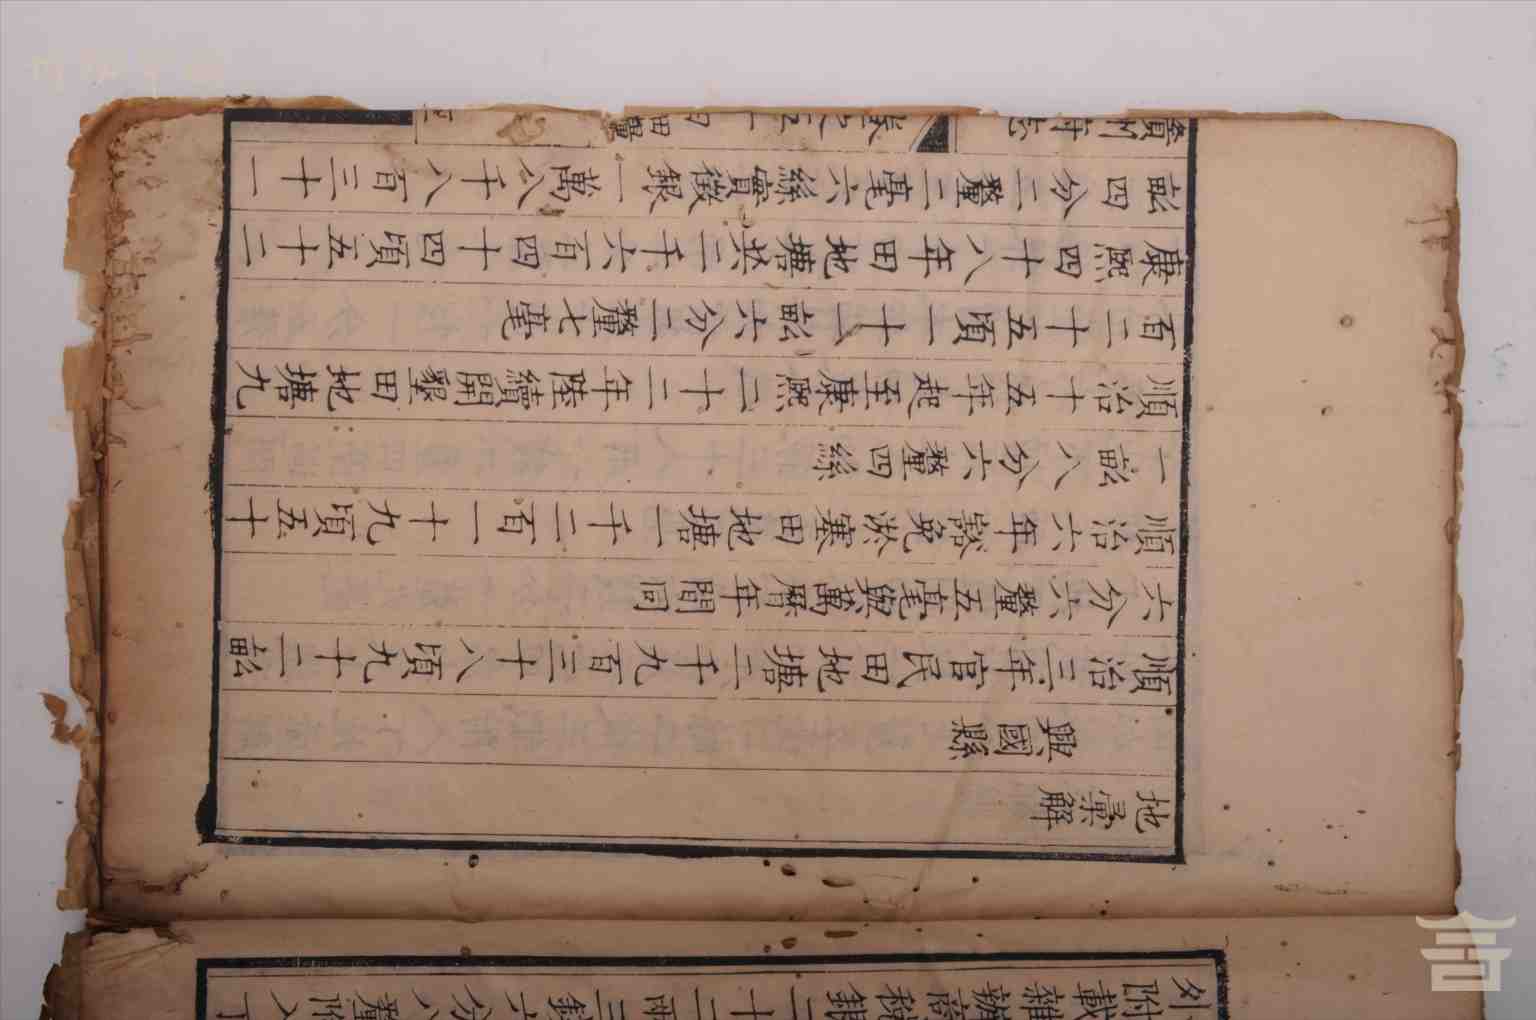 外附載雜辦商稅銀二十二兩三錢六分八釐附入丁
地彙解
興國縣
順治三年官民田地塘二千九百三十八頃九十二畝
六分六釐五毫與萬曆年間同
順治六年豁免淤塞田地塘一千二百一十九頃五十
一畝八分六釐四絲
順治十五年起至康熙二十二年陸續開墾田地塘九
百二十五頃一十一畝六分二釐七毫
康熙四十八年田地塘共二千六百四十四頃五十二
畝四分二釐二毫六絲實徵銀一萬八千八百三十一
贛州府志 卷之五